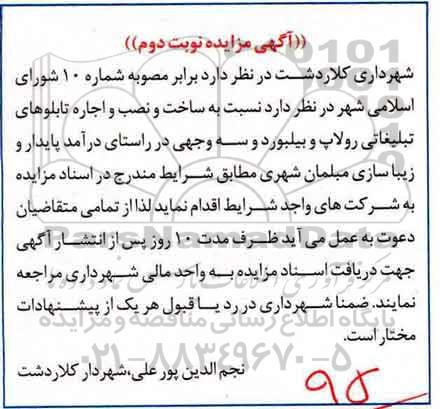 ((آگهی مزایده نوبت دوم))
شهرداری کلاردشت در نظر دارد برابر مصوبه شماره ۱۰ شورای
اسلامی شهر در نظر دارد نسبت به ساخت و نصب و اجاره تابلوهای
تبلیغاتی رولاپ و بیلبورد و سه وجهی در راستای درآمد پایدار و
زیبا سازی مبلمان شهری مطابق شرایط مندرج در اسناد مزایده
به شرکت های واجد شرایط اقدام نماید لذا از تمامی متقاضیان
دعوت به عمل می آید ظرف مدت ۱۰ روز پس از انتشار آگهی
جهت دریافت اسناد مزایده به واحد مالی شهرداری مراجعه
نمایند. ضمنا شهرداری در رد یا قبول هر یک از پیشنهادات
مختار است.
پایگاه اطلاع رسانی مناقصه و مزایده
۰۲۱-۸۸۳۴۹۶۷۰-۵
نجم الدین پور علی، شهردار کلاردشت